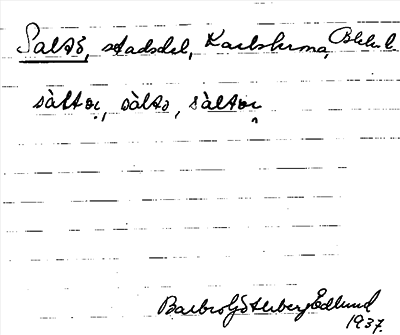 Saltö, stadsdel, Karlskrona, Blek. l.
sàltǝι, sàltǝ, sàltǝι
Barbro Götterberg Edlund
1937.